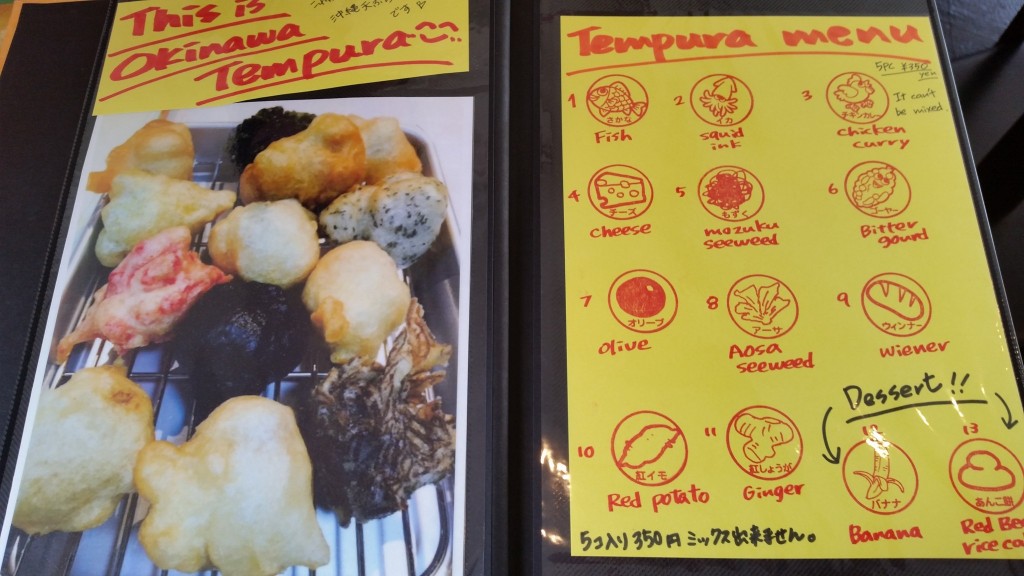 This is
Okinawa
Tempura
です
Tempura menu
5PC ¥350
yen
It can't
be mixed
1
さかな
Fish
2
イカ
squid
ink
3
チキンカレー
chicken
curry
4
チーズ
cheese
5
もずく
mozuku
seeweed
6
ゴーヤー
Bitter
gourd
7
オリーブ
Olive
8
アーサ
Aosa
seeweed
9
ウィンナー
wiener
Dessert!!
10
紅イモ
Red potato
11
紅しょうが
Ginger
12
バナナ
Banana
13
あんこ餅
Red Bea
rice ca
5コ入り350円 ミックス出来ません。